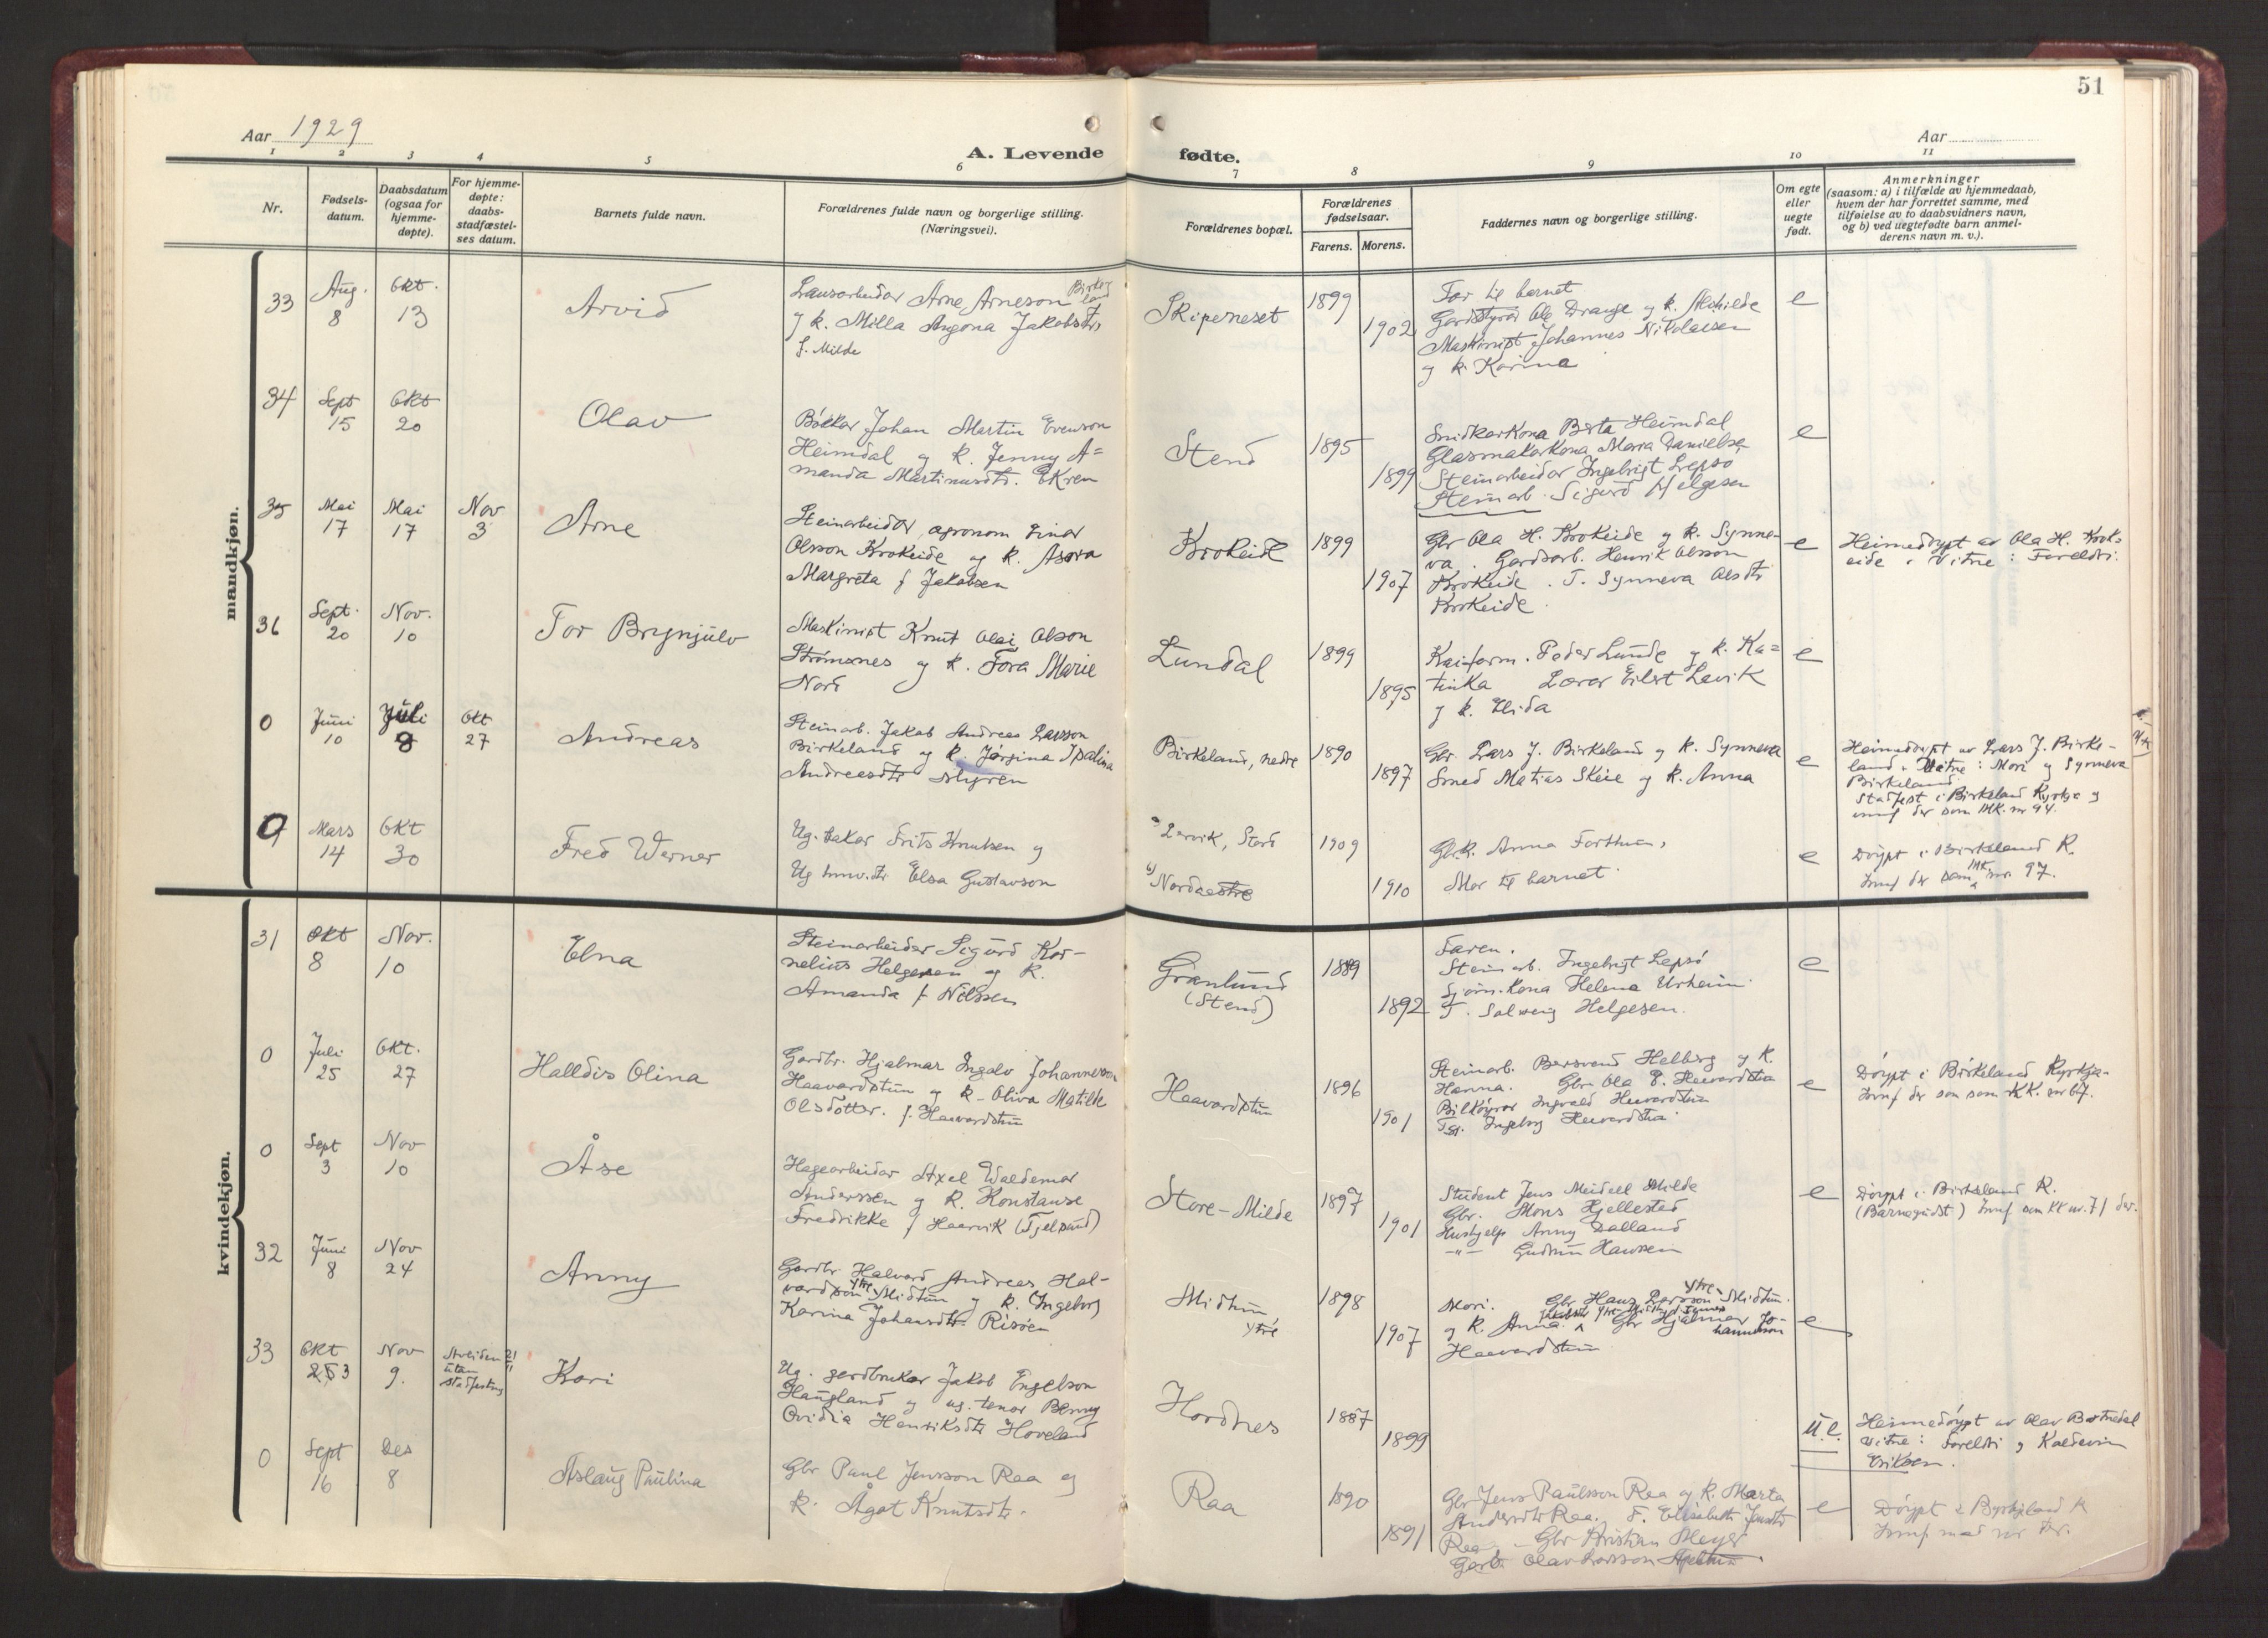 51
Aar 1929
Aar
A. Levende fødte.
1 2 3 4 5 6 7 8 9 10 11
Nr.
Fødsels-
datum.
Daabsdatum
(ogsaa for
hjemme-
døpte).
For hjemme-
døpte:
daabs-
stadfæstel-
ses datum.
Barnets fulde navn.
Forældrenes fulde navn og borgerlige stilling.
(Næringsvei).
Forældrenes bopæl.
Forældrenes
fødselsaar.
Farens. Morens.
Faddernes navn og borgerlige stilling.
Om egte
eller
uegte
født.
Anmerkninger
(saasom: a) i tilfælde av hjemmedaab,
hvem der har forrettet samme, med
tilføielse av to daabsvidners navn,
og b) ved uegtefødte barn anmel-
derens navn m. v.).
mandkjøn.
33
Aug.
8
Okt.
13
Arvid
Arne Arneson Birke
land
g k. Milla Angona Jakobsdtr
f. Milde
Skiperneset
1899
1902
Far til barnet
Gardstyrar Ole Drange g k. Alvhilde
Maskinist Johannes Nikolaisen
g k. Karina
e
34
Sept
15
Okt
20
Olav
Bøkkar Johan Martin Evenson
Heimdal og k. Jenny A=
manda Martinusdtr. Ekren
Stend
1895
1899
Snidkarkona Berta Heimdal
Glasmakarkona Maria Danielsen
Steinarbeidar Ingebrigt Lepsø
Steinarb. Sigurd Helgesen
e
35
Mai
17
Mai
17
Nov
3
Arne
Steinarbeidar, agronom Einar
Olsson Krokeide og k. Asora
Margreta f Jakobsen
Krokeide
1899
1907
Gbr Ola H. Krokeide g k. Synne-
va. Gardsarb. Henrik Olsson
Krokeide. T. Synneva Olsdtr
Krokeide.
e
Heimedøypt av Ola H. Krok-
eide. Vitne: Foreldri.
36
Sept.
20
Nov.
10
Tor Brynjulv
Maskinist Knut Olai Olson
Strømsnes g k. Tora Marie
Nord
Lundal
1899
1895
Kaiform. Peder Lunde g k. Ka=
tinka Lærar Eilert Levik
g k. Elida
e
0
Juni
10
Juli
8
Okt
27
Andreas
Steinarb. Jakob Andreas Larsson
Birkeland og k. Jørgina Ipalina
Andreasdtr Myren
Birkeland, nedre
1890
1897
Gbr. Lars J. Birkeland g k. Synneva
Smed Matias Skeie og k. Anna
e
Heimedøypt av Lars J. Birke-
land. Vitne: Mori g Synneva
Birkeland.
Stadfest i Birkeland Kyrkja g
innf der som MK. nr 94.
0
Mars
14
Okt
30
Fred Werner
Ug. bakar Frits Knutsen g
Ug Elsa Gustavson
a Lervik, Stord
b) Nordaestre
1909
1910
Gbr.k. Anna Forthun,
Mor til barnet.
e
Døypt i Birkeland K.
Innf der som MK nr 97.
kvindekjøn.
31
Okt
8
Nov.
10
Elna
Steinarbeider Sigurd Kor-
nelius Helgesen og k.
Amanda f Nilssen
Grønlund
(Stend)
1889
1892
Faren.
Steinarb. Ingebrigt Lepsø
Sjøm.kona Helena Urheim.
T. Solveig Helgesen.
e
0
Juli
25
Okt.
27
Halldis Olina
Gardbr. Hjalmar Ingolv Johanneson
Haavardstun g k. Oliva Matilde
Olsdotter. f. Haavardstun
Haavardstun
1896
1901
Steinarb. Bersvend Helberg g k.
Hanna. Gbr. Ola E. Haavardstun
Bilkøyrar Ingvald Haavardstun
Ingeborg Haavardstun
e
Døypt i Birkeland Kyrkja.
Innf der som som KK. nr 67.
0
Sept
3
Nov
10
Åse
Hagearbeidar Axel Waldemar
Anderssen g k. Konstanse
Fredrikke f Haarvik (Tjelsund)
Store-Milde
1897
1901
Student Jens Meidell Milde
Gbr. Mons Hjellestad
Hushjelp Anny Dalland
-"- Gudrun Hansen
e
Døypt i Birkeland K.
(Barnegudst) Innf som KK nr. 71 der.
32
Juni
8
Nov
24
Anny
Gardbr. Halvard Andreas Hal-
vardson ytre Midtun g k. Ingeborg
Karina Johansdtr. Risøen
Midtun
ytre
1898
1907
Mori. Gbr Hans Larsson ytre Midtun.
g k. Anna Gbr Hjalmar Jo-
hannesson
Haavardstun
e
33
Okt
23
Nov
9.
Avliden 21/11
utan
stadfesting
Kari
Ug. gardbrukar Jakob Engelson
Haugland g ug. tenar Benny
Ovidia Henriksdtr Hoveland
Hordnes
1887
1899
U.e.
Heimedøypt av Olav Bortnedal
Vitne: Foreldri g Kaldevin
Eriksen.
0
Sept
16
Des
8
Aslaug Paulina
Gbr Paul Jensson Raa og
k. Ågot Knutsdtr.
Raa
1890
1891
Gbr Jens Paulsson Raa g k. Marta
Andersdtr Raa. T. Elisabeth Jensdtr
Raa. Gbr Kristian Meyer
Gardbr. Olav Larsson Apeltun.
e
Døypt i Byrkjeland K